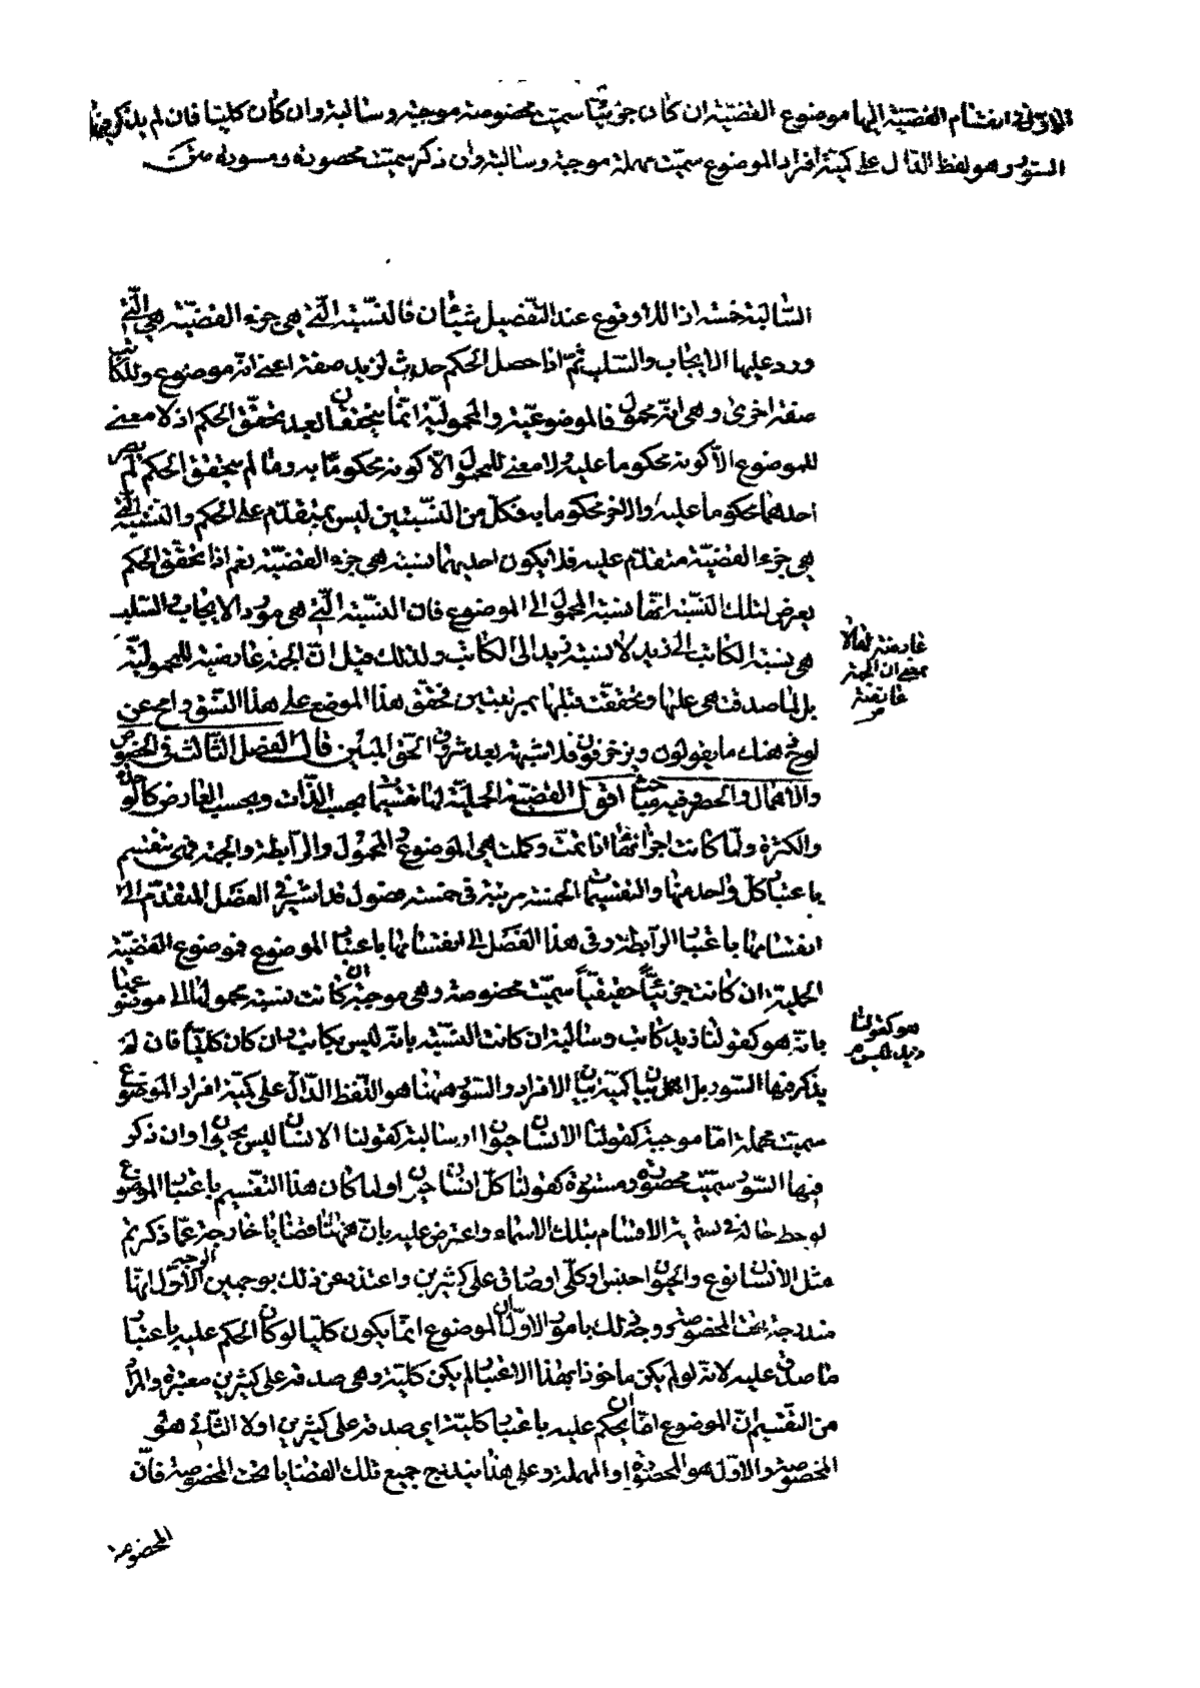 الاول في انقسام القضية اليها موضوع القضية ان كان جزئيا سميت مخصوصة موجبة وسالبة وان كان كليا فان لم يذكر فيها
السور وهو لفظ الدال على كمية افراد الموضوع سميت مهملة موجبة وسالبة وان ذكر سميت محصورة ومسورة
السالبة خمسة اذ اللاوقوع عند التفصيل شيئان فالنسبة التي هي جزء القضية هي التي
ورد عليها الايجاب والسلب ثم اذا حصل الحكم حدث لزيد صفة اعني انه موضوع وللكاتب
صفة اخرى وهي انه محمول فالموضوعية والمحمولية انما يتحققان بعد تحقق الحكم اذ لا معنى
للموضوع الا كونه محكوما عليه ولا معنى للمحمول الا كونه محكوما به وما لم يتحقق الحكم لم يصر
احدهما محكوما عليه والاخر محكوما به فكل من النسبتين ليس بمتقدم على الحكم والنسبة التي
هي جزء القضية متقدم عليه فلا يكون احديهما نسبة هي جزء القضية نعم اذا تحقق الحكم
يعرض لتلك النسبة انها نسبة المحمول الى الموضوع فان النسبة التي هي مورد الايجاب والسلب
هي نسبة الكاتب الى زيد لا نسبة زيد الى الكاتب ولذلك قيل ان الجهة عارضة للمحمولية
عارضة
بمعنى ان الجهة
عارضة
بل لما صدقت هي عليها وتحققت قبلها بمرتبتين تحقق هذا الموضع على هذا النسق وامح عن
لوح هنك ما يقولون ويزخرفون فلا شبهة بعد شروق الحق المبين قال الفصل الثالث في الخصوص
والاهمال والحصر وفيه مباحث اقول القضية الحملية لها تقسيما بحسب الذات وبحسب العارض كالوحدة
والكثرة ولما كانت اجزائها اذا تمت وكملت هي الموضوع والمحمول والرابطة والجهة فهي تنقسم
باعتبار كل واحد منها والتقسيمات الخمسة مرتبة في خمسة فصول فلا اشير في الفصل المتقدم الى
انقسامها باعتبار الرابطة وفي هذا الفصل الى انقسامها باعتبار الموضوع فموضوع القضية
الحملية ان كانت جزئيا حقيقيا سميت مخصوصة وهي موجبة ان كانت نسبة محمولها الى موضوعها
بانه هو كقولنا زيد كاتب وسالبة ان كانت النسبة بانه ليس بكاتب وان كان كليا فان لم
هو كقولنا
زيد ليس
يذكر فيها السور بل اهمل بيان كمية بيان الافراد والسور ههنا هو اللفظ الدال على كمية افراد الموضوع
سميت مهملة اما موجبة كقولنا الانسان حيوان او سالبة كقولنا الانسان ليس بحجر وان ذكر
فيها السور سميت محصورة ومسورة كقولنا كل انسان حيوان ولما كان هذا التقسيم باعتبار الموضوع
لوحظ حاله في تسمية الاقسام بتلك الاسماء واعترض عليه بان ههنا قضايا خارجة عما ذكرتم
مثل الانسان نوع والحيوان جنس او كلي او صادق على كثيرين واعتذر عن ذلك بوجهين الوجه الاول انها
مندرجة تحت المخصوصة ووجه ذلك بامور الاول ان الموضوع انما يكون كليا لو كان الحكم عليه باعتبار
ما صدق عليه لانه لو لم يكن ماخوذا بهذا الاعتبار لم يكن كلية وهي صدقه على كثيرين معتبرة والمراد
من التقسيم ان الموضوع اما ان يحكم عليه باعتبار كليته اي صدقه على كثيرين او لا الثاني هو
المخصوصة والاول هو المحصورة او المهملة وعلى هذا يندرج جميع تلك القضايا تحت المخصوصة فان
المخصوصة